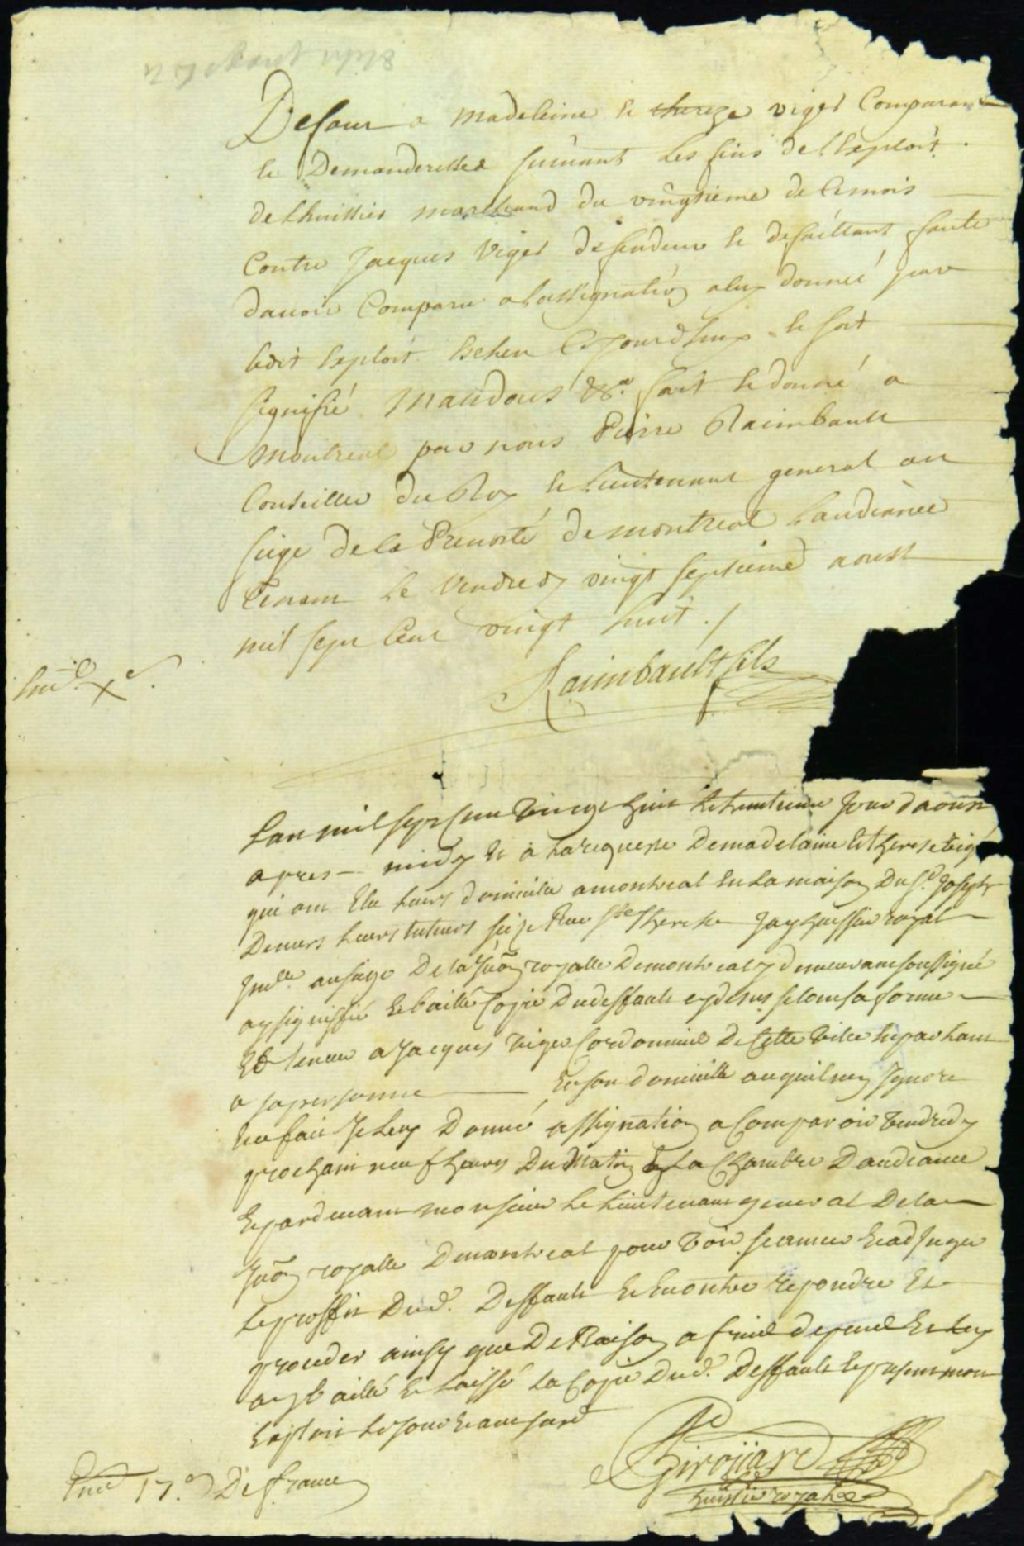 Defaut a madeleine et therese viger Comparan
et Demanderesses suivant les fins de lexploit
de lhuissier marchand du vingtieme de Ce mois
Contre Jacques Viger defendeur et defaillant faute
davoir Comparu a lassignation a luy donnée par
ledit exploit Echeu Ce Jourdhuy et soit
signifié Mandons &a. fait et donné a
montreal par nous Pierre Raimbault
Conseiller du Roy et Lieutenant general au
siege de la Prevosté de montreal Laudience
tenant le Vendredy vingt septieme aoust
mil sept Cent vingt huit ./
Raimbault fils
Lan mil sept Cent vingt huit le trentieme Jour daoust
apres — midy Et a la requeste De madelaine Et therese viger
qui ont Elu leurs domicile a montreal En La maison Du Sr. Joseph
Demers leurs tuteurs size Rue Ste Therese Jay huissier royal
Jmlle. au siege De la Juon royalle De montreal y demeurant soussigné
ay signiffié Et baillé Copie Du deffault cy desus selon sa forme
Et teneur a Jacques viger Cordonnier De Cette ville En parlant
a sa personne — En son domicille a ce quil nen Jgnore
Luy fait Je luy Donné assignation a Comparoir vendredy
prochain neuf heures Du Matin En La Chambre Daudiance
Et pardevant monsieur le Lieutenant general De la
Juon royalle De montreal pour voir se rendre Et adjuger
Le proffit Dud. Deffault Et En outre repondre Et
proceder ainsy que De Raison a fin de depens Et luy
ay baillé Et laissé La Copie Dud. Deffault Et presant mon
Exploit Le Jour Et an susd
Girouard
huissier royal
17. s De france